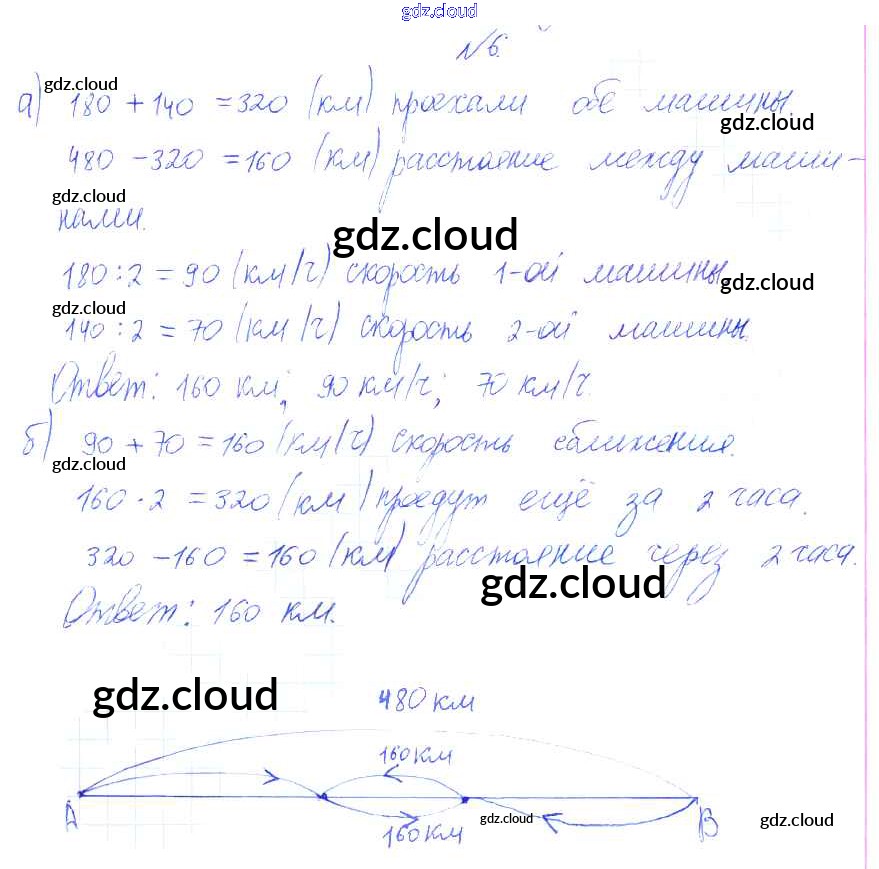 gdz.cloud
№6.
gdz.cloud
а) 180 + 140 = 320 (км) проехали обе машины.
gdz.cloud
480 - 320 = 160 (км) расстояние между маши-
gdz.cloud
нами.
gdz.cloud
180 : 2 = 90 (км/ч) скорость 1-ой машины
gdz.cloud
gdz.cloud
140 : 2 = 70 (км/ч) скорость 2-ой машины.
Ответ: 160 км; 90 км/ч; 70 км/ч.
б) 90 + 70 = 160 (км/ч) скорость сближения.
gdz.cloud
160 · 2 = 320 (км) проедут ещё за 2 часа.
320 - 160 = 160 (км) расстояние через 2 часа.
gdz.cloud
Ответ: 160 км.
gdz.cloud
480 км
160 км
А
В
160 км
gdz.cloud
gdz.cloud